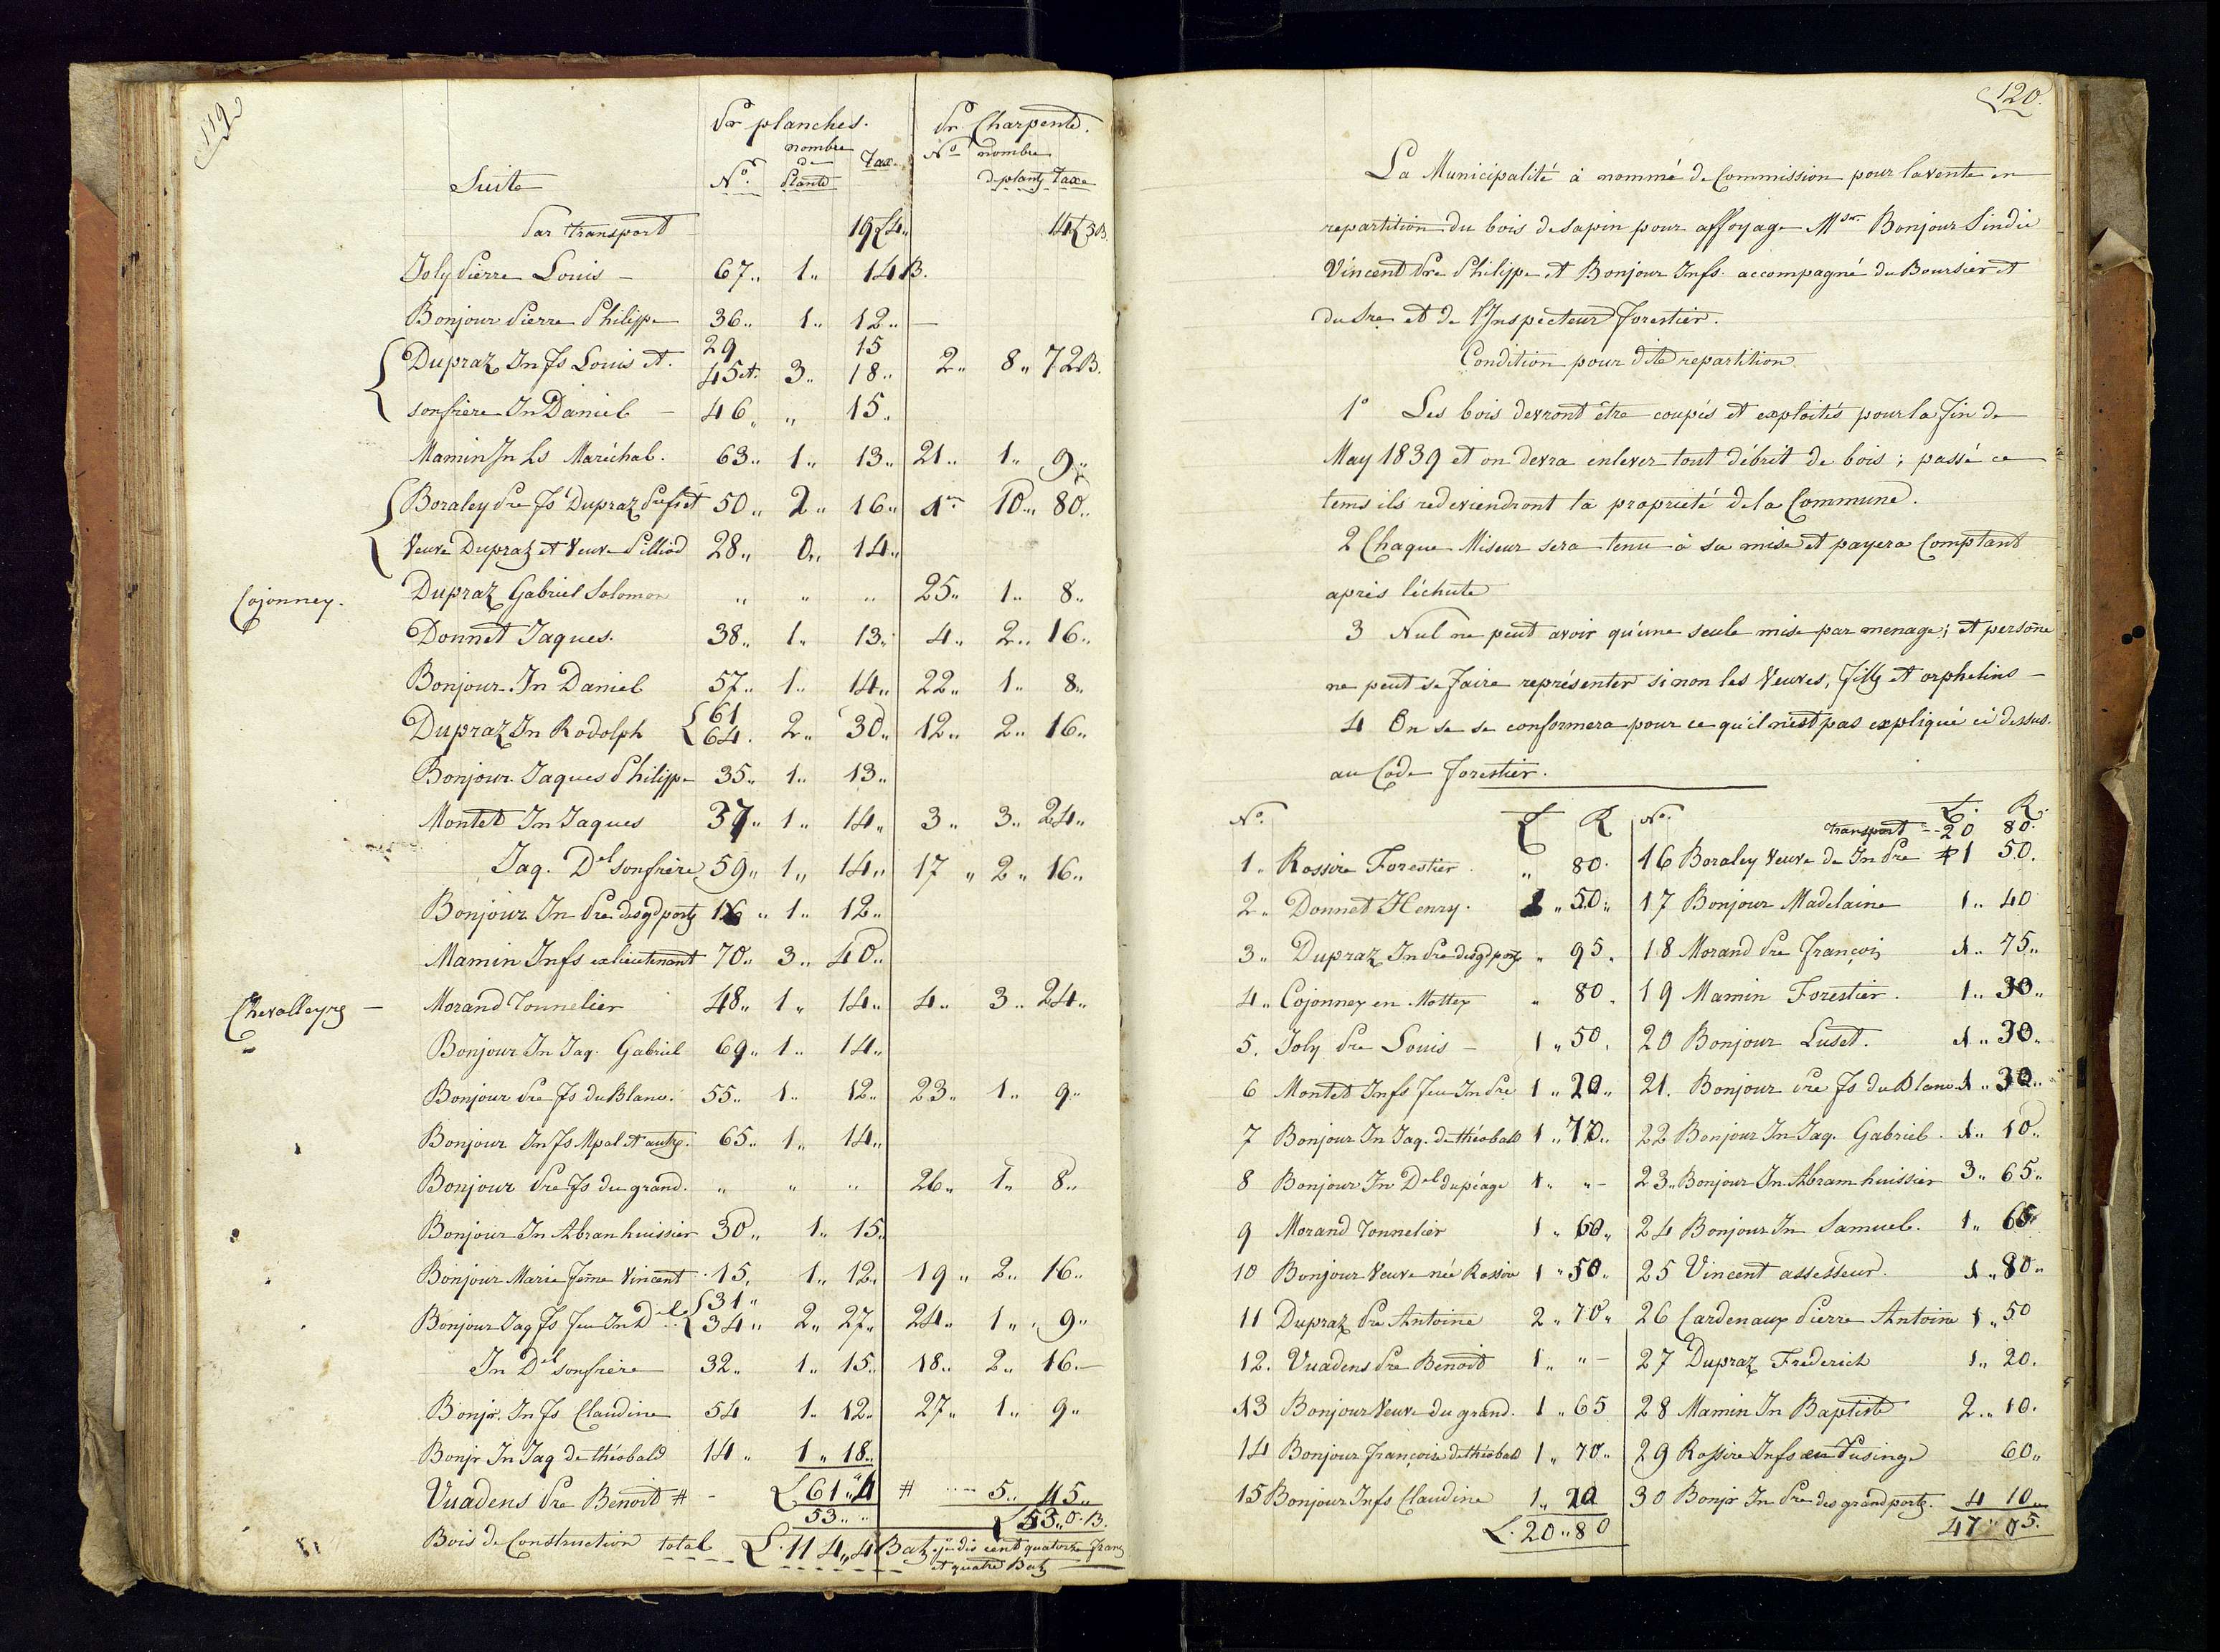 119
Pr planches. Pr. Charpente.
Suite No. nombre de Plante Taxe No nombre de plants Taxe
Par transport 19 L 4,, 14 L 3 B.
Joly Pierre Louis – 67,, 1,, 14 B.
Bonjour Pierre Philippe 36,, 1,, 12,, –
Dupraz Jn fs Louis et 29 45 et 3,, 15 18,, 2,, 8,, 72 B.
son frère Jn Daniel – 46,, ,, 15,,
Mamin Jn Ls Maréchal. 63,, 1,, 13,, 21,, 1,, 9,,
Boraley Pre fs Dupraz Prefet 50,, 2,, 16,, 1,, 10,, 80,,
Veuve Dupraz et Veuve Pilliod 28,, 0,, 14,,
Cojonney. Dupraz Gabriel Solomon ,, ,, ,, 25,, 1,, 8,,
Donnet Jaques. 38,, 1,, 13,, 4,, 2,, 16,,
Bonjour Jn Daniel 57,, 1,, 14,, 22,, 1,, 8,,
Dupraz Jn Rodolph { 61 64. 2,, 30,, 12,, 2,, 16,,
Bonjour Jaques Philippe 35,, 1,, 13,,
Montet Jn Jaques 37,, 1,, 14,, 3,, 3,, 24,,
Jaq. Del son frère 59,, 1,, 14,, 17 ,, 2,, 16,,
Bonjour Jn Pre des gd portz 16 ,, 1,, 12,,
Mamin Jn fs exlieutenant 70,, 3,, 40,,
Chevalleyre – Morand Tonnelier 48,, 1,, 14,, 4,, 3,, 24,,
Bonjour Jn Jaq. Gabriel 69,, 1,, 14,,
Bonjour Pre fs du Blanc. 55,, 1,, 12,, 23,, 1,, 9,,
Bonjour Jn fs Mpal et autre. 65,, 1,, 14,,
Bonjour Pre fs du grand. ,, ,, ,, 26,, 1,, 8,,
Bonjour Jn Abran huissier 30,, 1,, 15,,
Bonjour Marie feme Vincent 15,, 1,, 12,, 19 ,, 2,, 16,,
Bonjour Jaq fs feu Jn Del { 31,, 34,, 2,, 27,, 24,, 1,, 9,,
Jn Del son frère 32,, 1,, 15,, 18,, 2,, 16,, –
Bonjr. Jn fs Claudine 54 1,, 12,, 27,, 1,, 9,,
Bonjr Jn Jaq de théobald 14 ,, 1,, 18,,
Vuadens Pre Benoit # – L 61,,4 # 5,, 45,,
53,, ,, L 53,,0 B.
Bois de Construction total L. 114,,4 Batz je dis cent quatorze francs
et quatre Batz
120.
La Municipalité à nommé de Commission pour la vente en
repartition du bois de sapin pour affoyage Msr. Bonjour Sindic
Vincent Pre Philippe et Bonjour Jn fs. accompagné du Boursier et
du Sre et de l'Inspecteur forestier.
Condition pour dite repartition
1° Les bois devront être coupés et exploités pour la fin de
May 1839 et on devra enlever tout débrit de bois ; passé ce
tems ils redeviendront la propriété de la Commune.
2 Chaque Miseur sera tenu à sa mise et payera Comptant
après l'échute
3 Nul ne peut avoir qu'une seule mise par menage ; et persone
ne peut se faire représenter sinon les Veuves, filles et orphelins –
4 On se se conformera pour ce qu'il n'est pas expliqué ci dessus.
au Code forestier.
No. L R
1,, Rossire Forestier ,, 80.
2,, Donnet Henry. 2 ,, 50,,
3,, Dupraz Jn Pre des gd portz ,, 95,,
4,, Cojonney en Mottex ,, 80,,
5. Joly Pre Louis – 1 ,, 50.
6 Montet Jn fs feu Jn Pre 1 ,, 20,,
7 Bonjour Jn Jaq. de théobald 1 ,, 70,,
8 Bonjour Jn Del du péage 1,, ,, –
9 Morand Tonnelier 1 ,, 60,,
10 Bonjour Veuve née Rossire 1 ,, 50,,
11 Dupraz Pre Antoine 2 ,, 70,,
12. Vuadens Pre Benoit 1,, ,, –
13 Bonjour Veuve du grand. 1 ,, 65
14 Bonjour françoise de théobald 1 ,, 70,,
15 Bonjour Jn fs Claudine 1,, 20
L. 20,,80
No. L. R.
transport -- 20 80.
16 Boraley Veuve de Jn Pre 1 50.
17 Bonjour Madelaine 1,, 40
18 Morand Pre françois 1,, 75,,
19 Mamin Forestier. 1,, 30,,
20 Bonjour Luset. 1,, 30,,
21. Bonjour Pre fs du Blanc 1,, 30,,
22 Bonjour Jn Jaq. Gabriel. 1,, 10,,
23,, Bonjour Jn Abram huissier 3,, 65,,
24 Bonjour Jn Samuel. 1,, 65
25 Vincent assesseur. 1,, 80,,
26 Cardenaux Pierre Antoine 1,, 50
27 Dupraz Frederich 1,, 20.
28 Mamin Jn Baptiste 2,, 10.
29 Rossire Jn fs en Tusinge 60,,
30 Bonjr Jn Pre des grand portz. 4 10,,
47,,05.